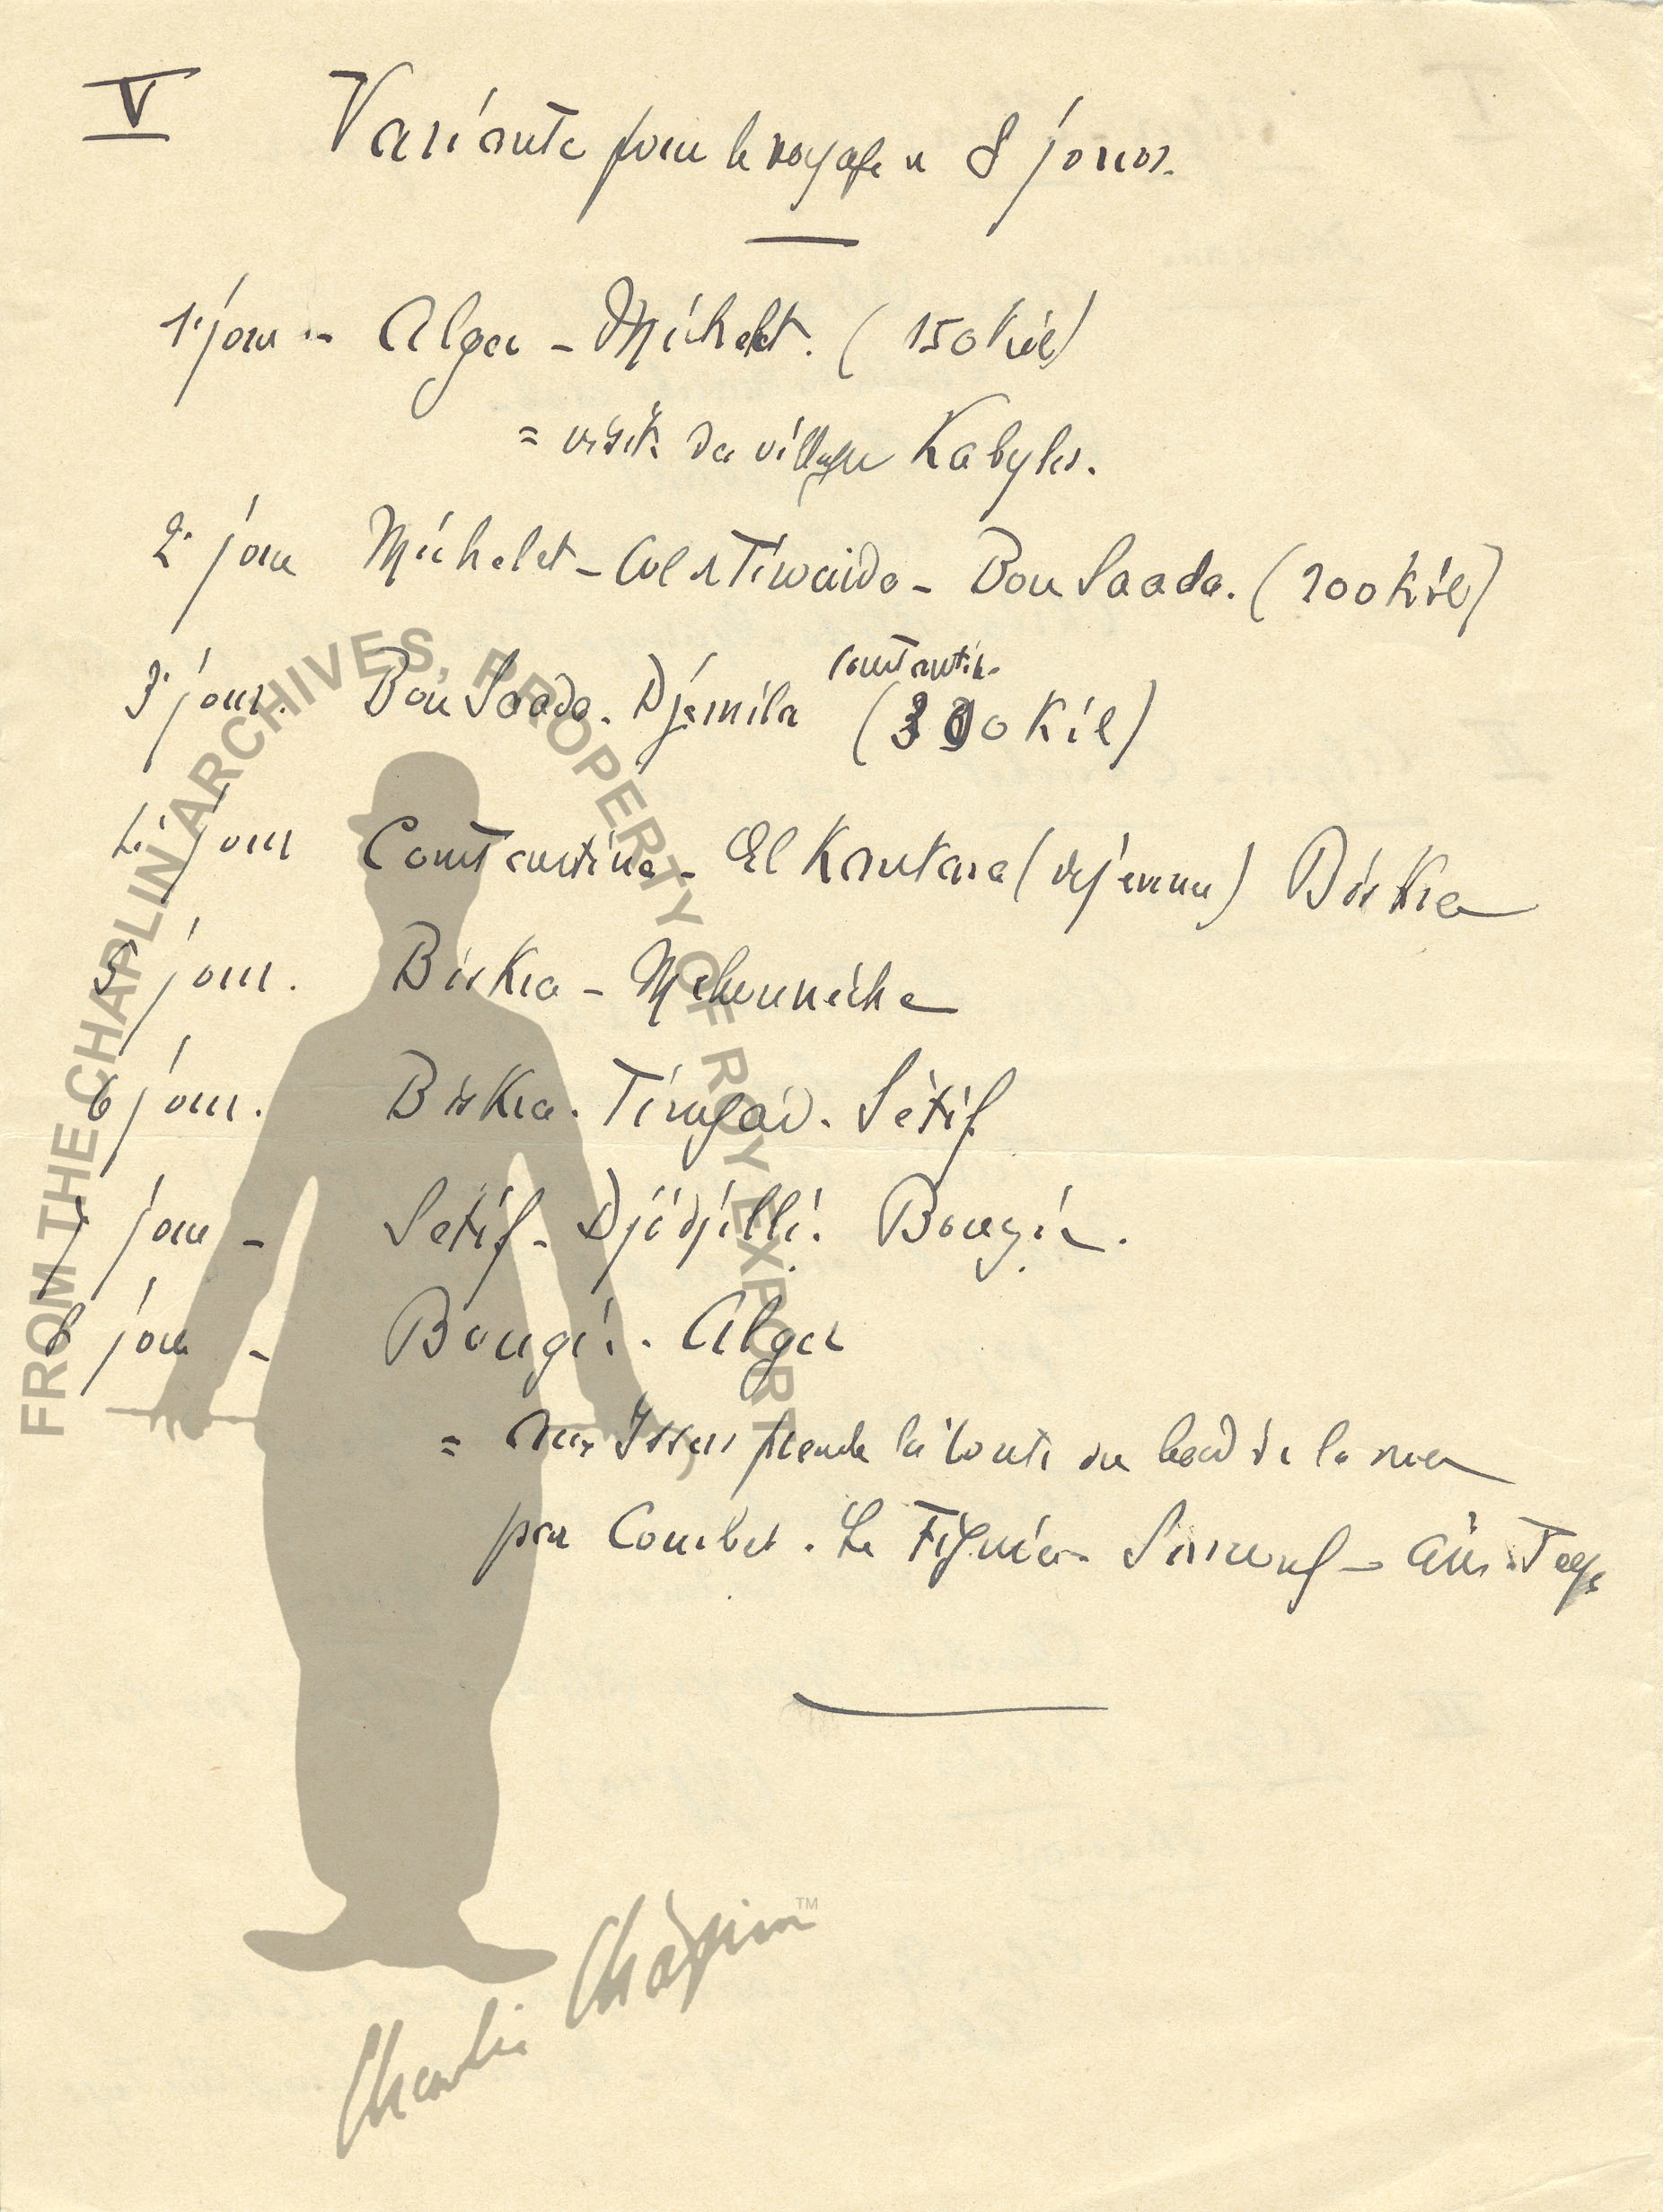 V Variante pour le voyage en 8 jours.
1e jour - Alger - Michelet. (150 Kil)
= visite de village Kabyles.
2e jour Michelet - Col de Tirourda - Bou Saada. (200 Kil)
Constantine
3e jour. Bou Saada. Djemila (300 Kil)
4e jour Constantine - El Kantara (déjeuner) Biskra
5 jour. Biskra - Mchounèche
6 jour. Biskra. Timgad. Sétif
7 jour - Setif - Djidjelli. Bougie.
8 jour - Bougie. Alger
= Issers prendre la route du bord de la mer
par Courbet. Le Figuier - Surcouf - Ain Taya
FROM THE CHAPLIN ARCHIVES, PROPERTY OF ROY EXPORT
Charlie Chaplin™